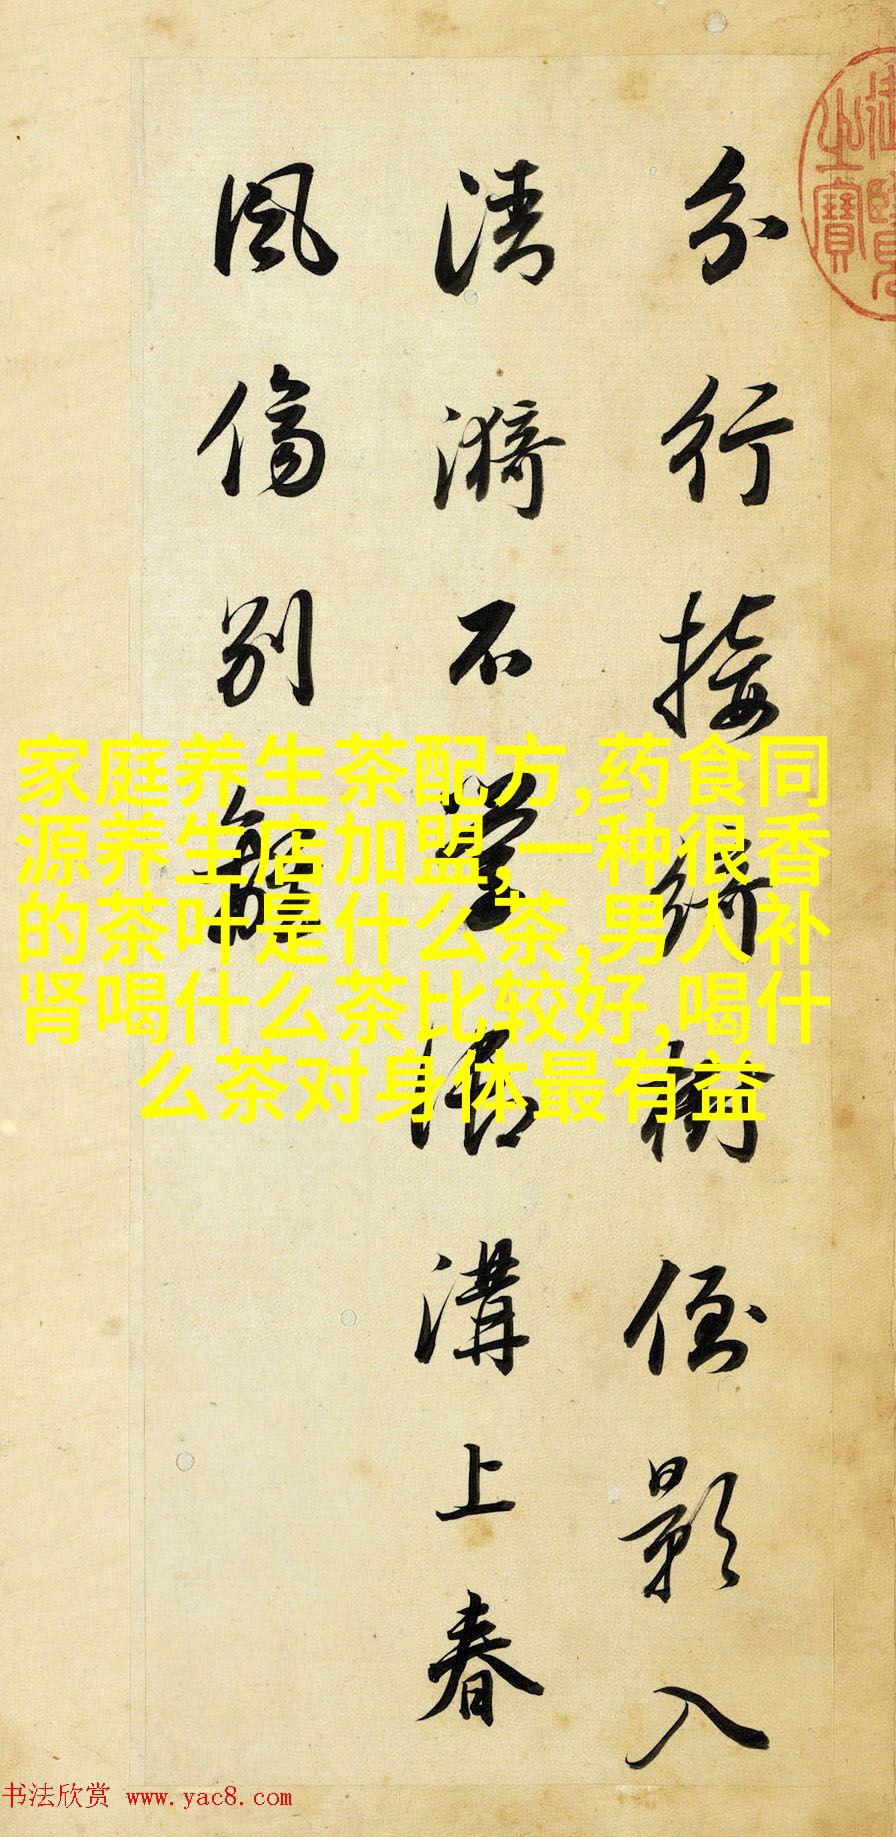 分行接綺樹倒影入
清漪不學御溝上春
風傷別離
御覽之寶
家庭养生茶配方,药食同
源养生店加盟,一种很香
的茶叶是什么茶,男人补
肾喝什么茶比较好,喝什
么茶对身体最有益
书法欣赏 www.yac8.com